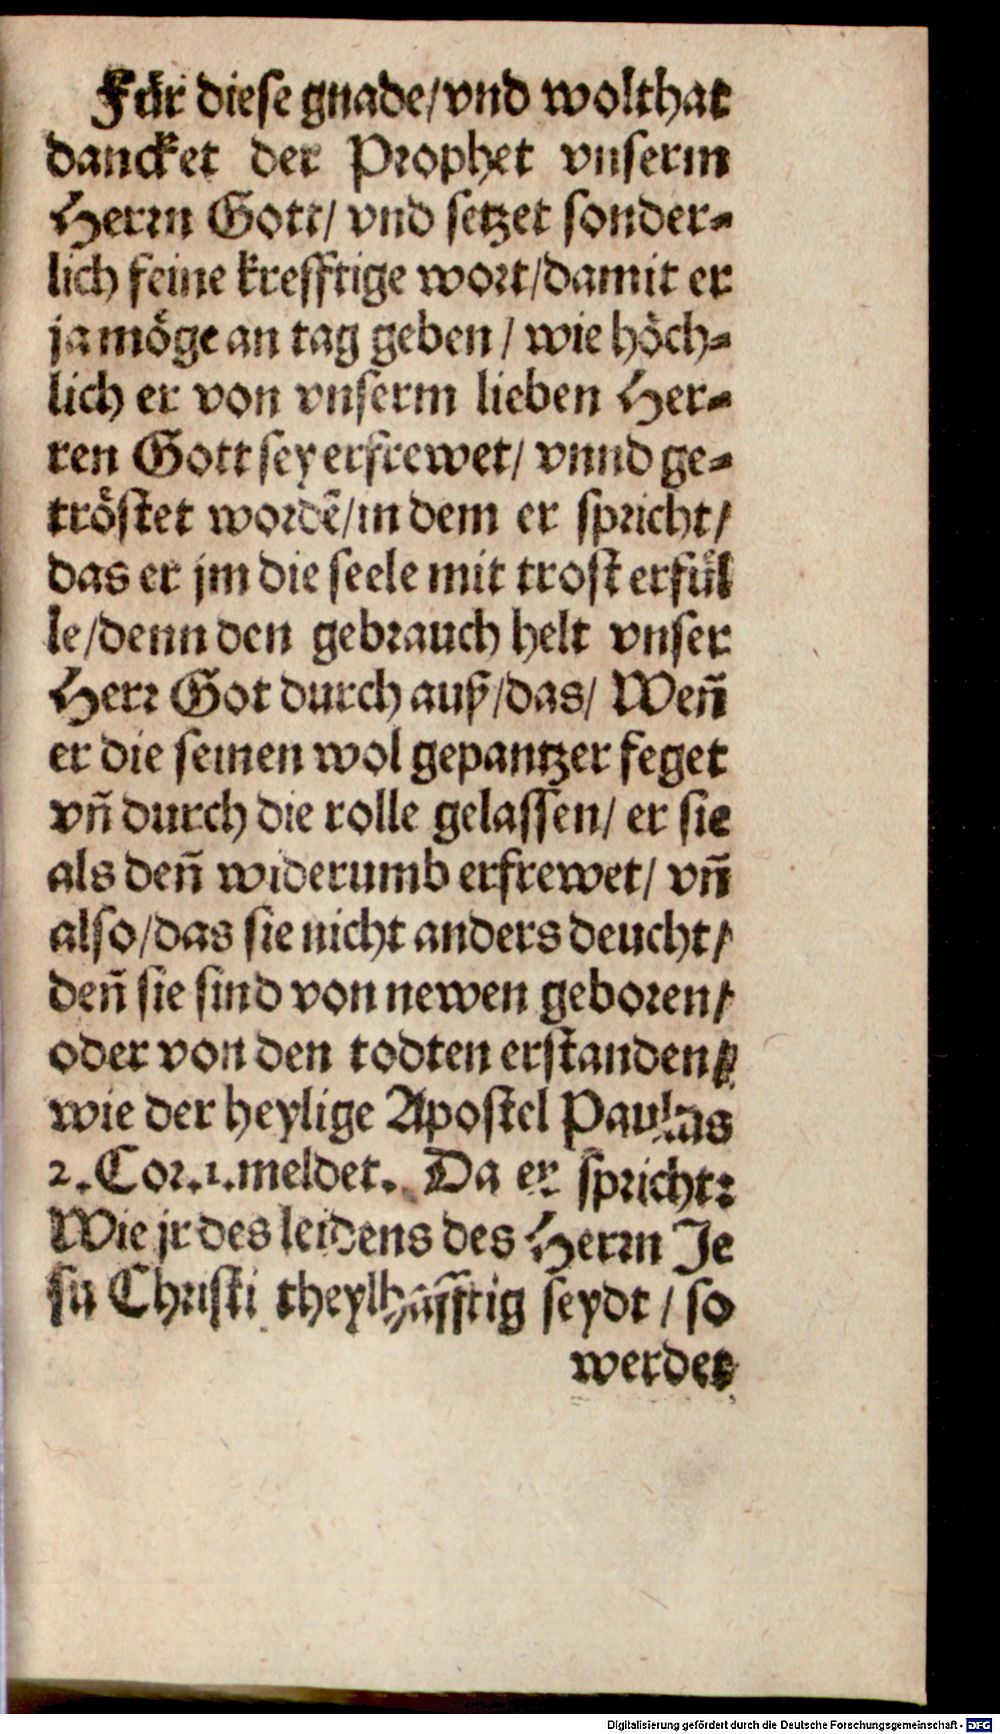 Für diese gnade/vnd wolthat
dancket der Prophet vnserm
Herrn Gott/ vnd setzet sonder⸗
lich feine krefftige wort/damit er
ja möge an tag geben / wie höch⸗
lich er von vnserm lieben Her⸗
ren Gott sey erfrewet/ vnnd ge⸗
tröstet wordẽ/in dem er spricht/
das er jm die seele mit trost erfül
le/denn den gebrauch helt vnser
Herr Got durch auß/das/ Weñ
er die seinen wol gepantzer feget
vñ durch die rolle gelassen/ er sie
als deñ widerumb erfrewet/ vñ
also/das sie nicht anders deucht/
deñ sie sind von newen geboren/
oder von den todten erstanden/
wie der heylige Apostel Paulus
2. Cor. 1. meldet. Da er spricht:
Wie jr des leidens des Herrn Je
su Christi theylhafftig seydt / so
werdet
Digitalisierung gefördert durch die Deutsche Forschungsgemeinschaft - DFG